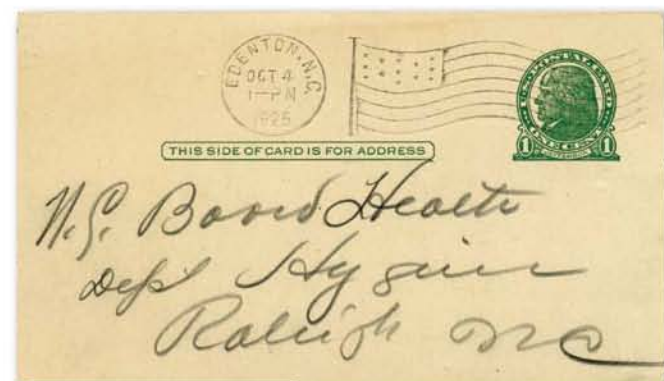 EDENTON, N.C.
OCT 4
1—PM
1925
U.S. POSTAL CARD
ONE CENT
1 1
THIS SIDE OF CARD IS FOR ADDRESS
N.C. Board Health
Dept Hygiene
Raleigh NC